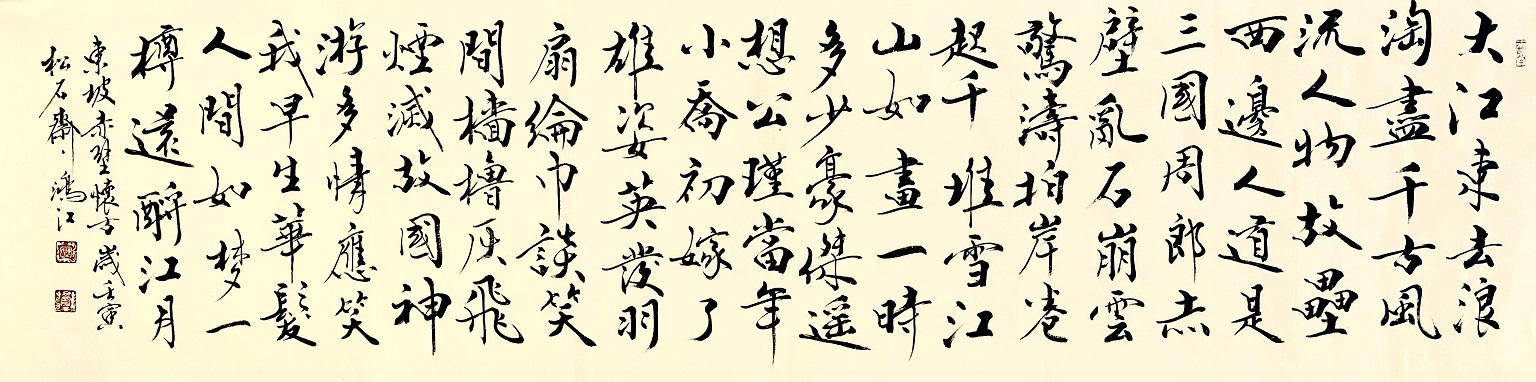 大江東去浪
淘盡千古風
流人物故壘
西邊人道是
三國周郎赤
壁亂石崩雲
驚濤拍岸卷
起千堆雪江
山如畫一時
多少豪傑遥
想公瑾當年
小喬初嫁了
雄姿英發羽
扇綸巾談笑
間檣櫓灰飛
煙滅故國神
游多情應笑
我早生華髮
人間如梦一
樽還酹江月
東坡赤壁懷古歲壬寅
松石齋鴻江